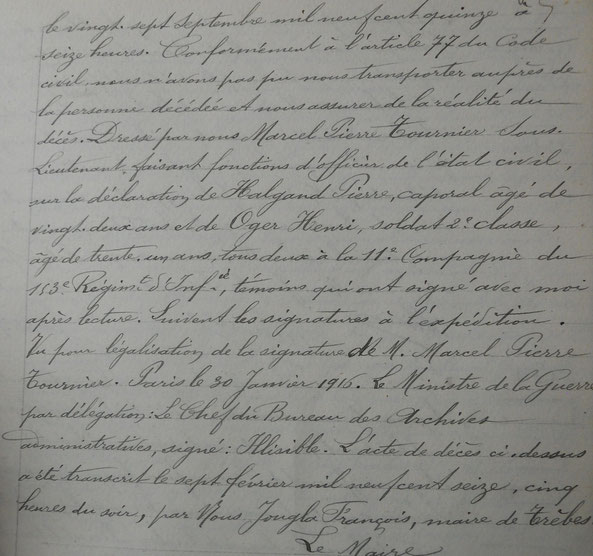 le vingt. sept Septembre mil neuf cent quinze à
seize heures. Conformément à l'article 77 du Code
civil nous n'avons pas pu nous transporter auprès de
la personne décédée et nous assurer de la réalité du
décès. Dressé par nous Marcel Pierre Tournier Sous.
Lieutenant faisant fonctions d'officier de l'état civil,
sur la déclaration de Halgand Pierre, caporal âgé de
vingt. deux ans et de Oger Henri, soldat 2e classe,
âgé de trente. un ans, tous deux à la 11e Compagnie du
153e Régimt d'Infie, témoins qui ont signé avec moi
après lecture. Suivent les signatures à l'expédition.
Vu pour légalisation de la signature de M. Marcel Pierre
Tournier. Paris le 30 Janvier 1916. Le Ministre de la Guerre
par délégation: Le Chef du Bureau des Archives
administratives, signé: Illisible. L'acte de décès ci. dessus
a été transcrit le sept février mil neuf cent seize, cinq
heures du soir, par Nous Jougla François, maire de Trèbes
Le Maire